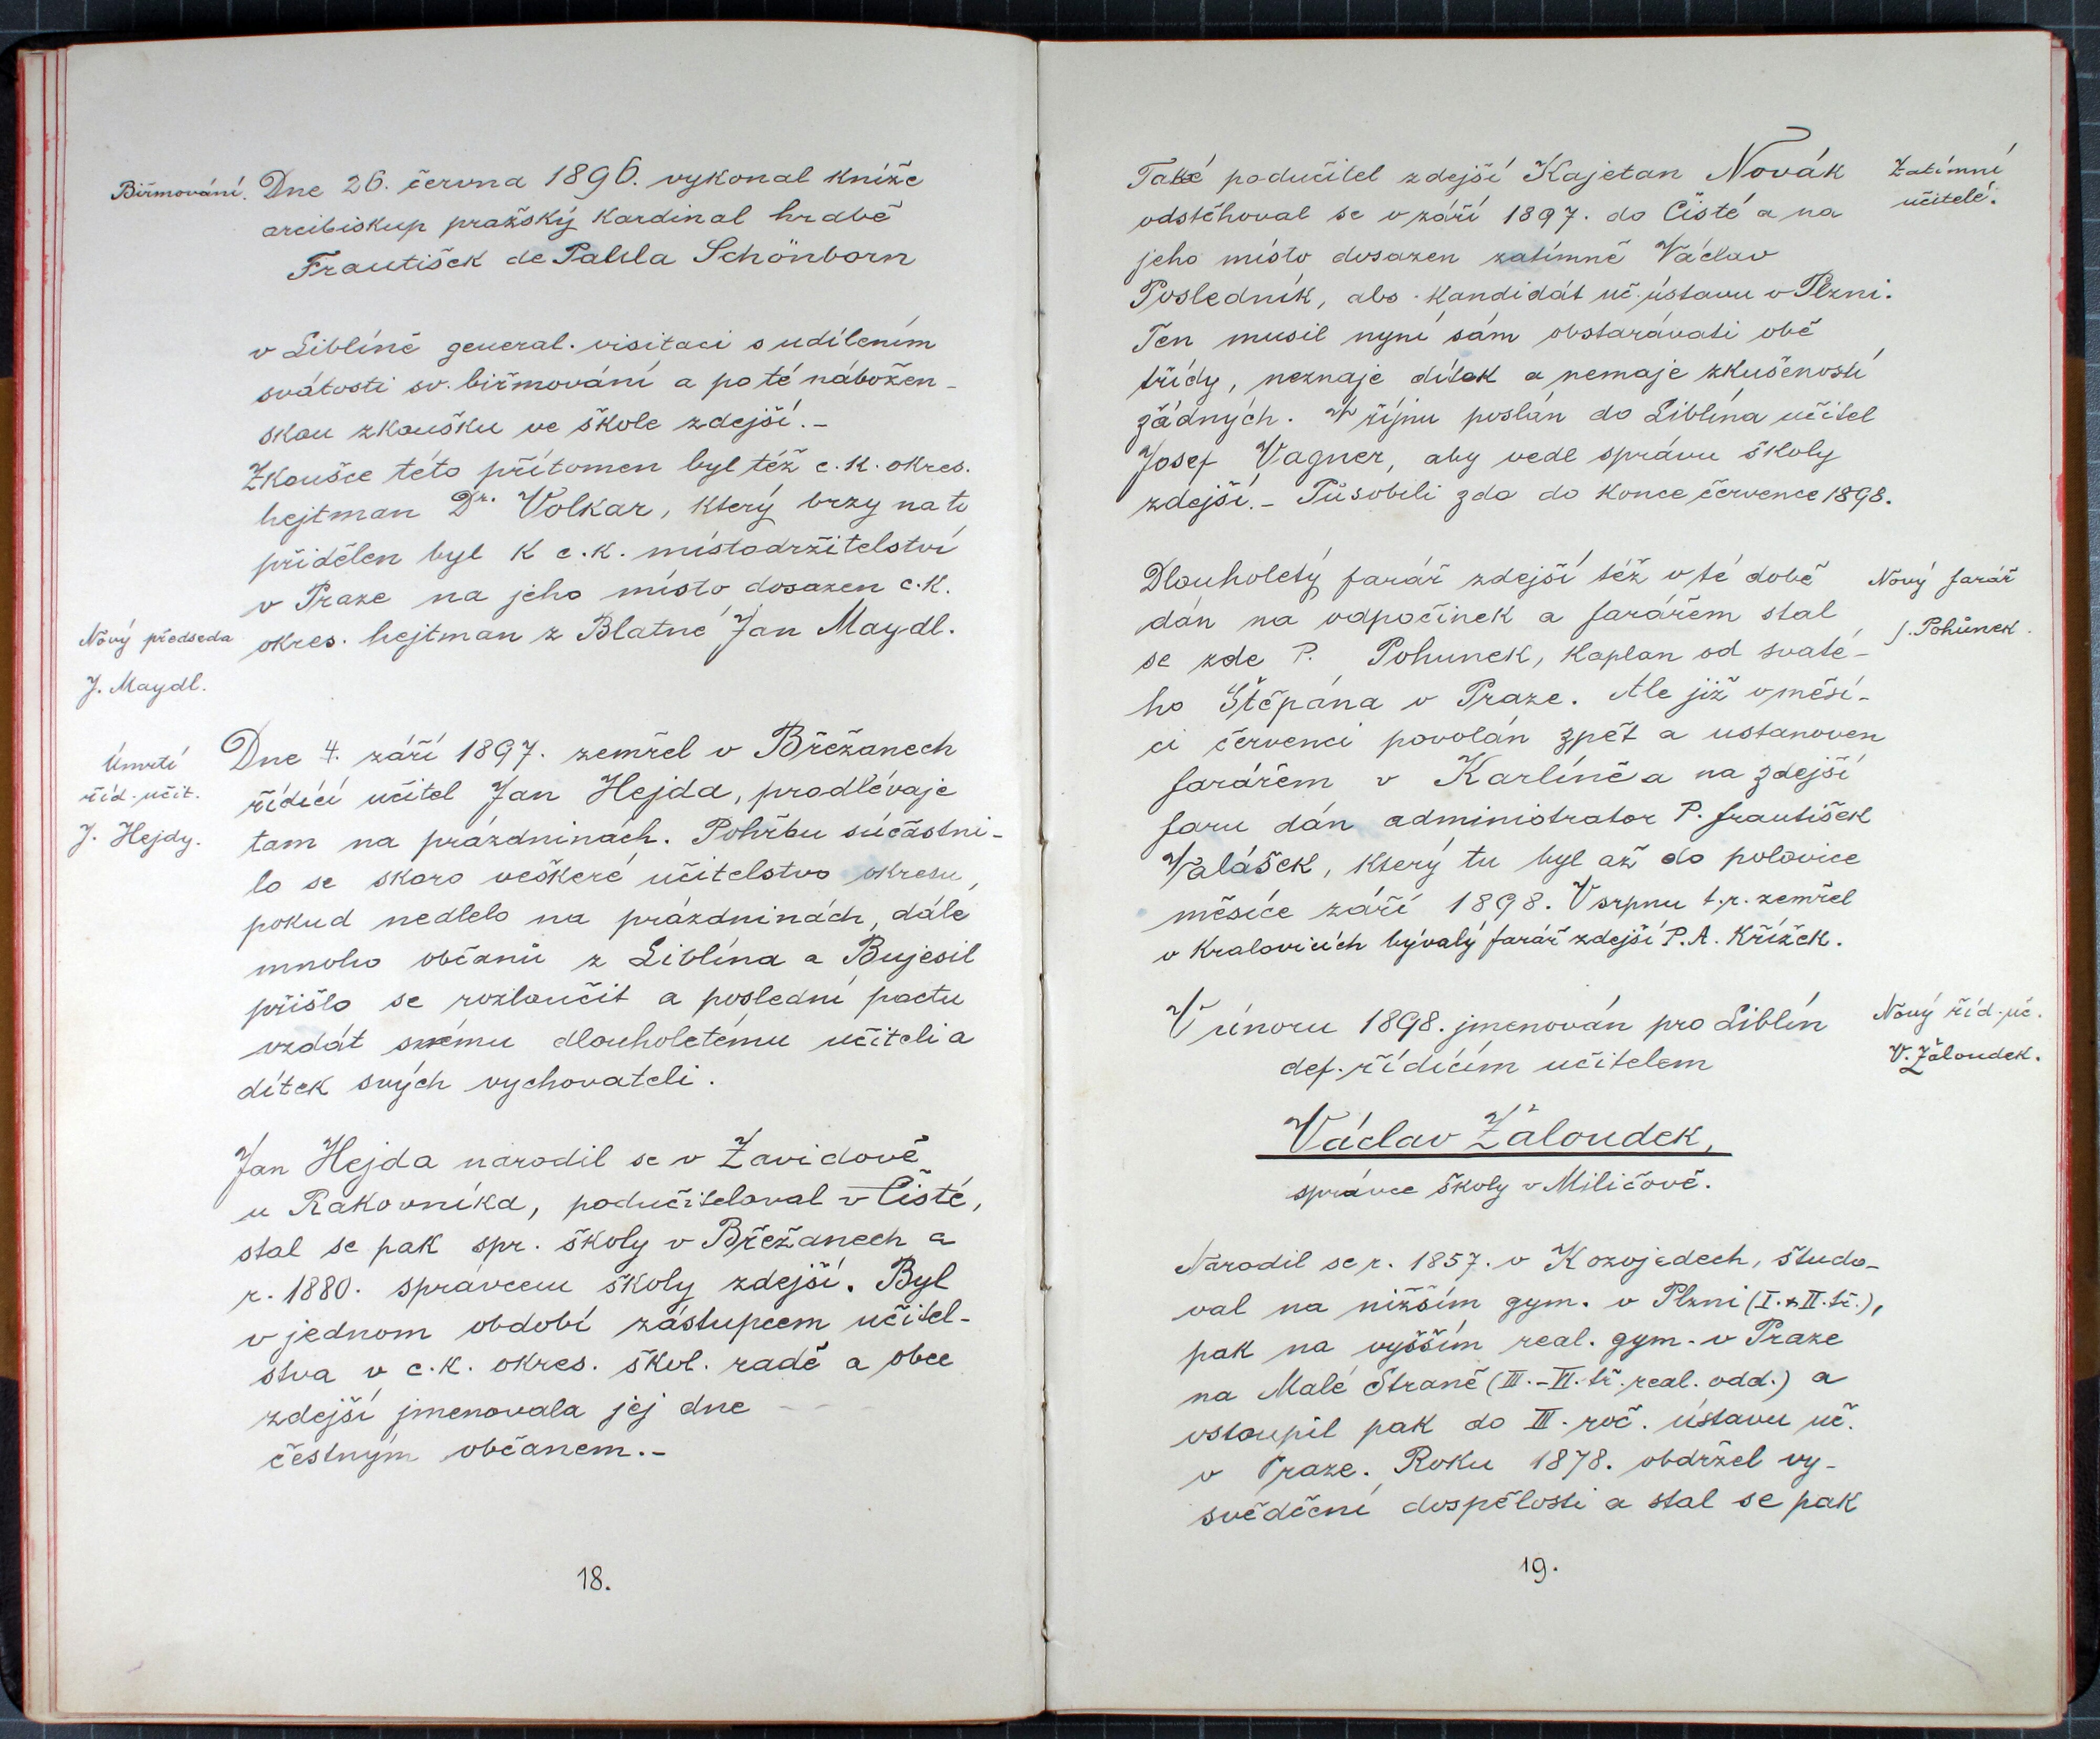 Biřmování.
Dne 26. června 1896. vykonal kníže
arcibiskup pražský Kardinal hrabě
František de Paula Schönborn
v Liblíně general. visitaci s udílením
svátosti sv. biřmování a po té nábožen-
skou zkoušku ve škole zdejší.-
Zkoušce této přítomen byl též c. k. okres.
hejtman Dr. Volkar, který brzy na to
přidělen byl k c. k. místodržitelství
v Praze na jeho místo dosazen c. k.
okres. hejtman z Blatné Jan Maydl.
Nový předseda
J. Maydl.
Úmrtí
říd. učit.
J. Hejdy.
Dne 4. září 1897. zemřel v Břežanech
řídící učitel Jan Hejda, prodlévaje
tam na prázdninách. Pohřbu súčastni-
lo se skoro veškeré učitelstvo okresu,
pokud nedlelo na prázdninách, dále
mnoho občanů z Liblína a Bujesil
přišlo se rozloučit a poslední poctu
vzdát svému dlouholetému učiteli a
dítek svých vychovateli.
Jan Hejda narodil se v Zavidově
u Rakovníka, podučiteloval v Čisté,
stal se pak spr. školy v Břežanech a
r. 1880. správcem školy zdejší. Byl
v jednom období zástupcem učitel-
stva v c. k. okres. škol. radě a obec
zdejší jmenovala jej dne - - -
čestným občanem.-
18.
Také podučitel zdejší Kajetan Novák
odstěhoval se v září 1897. do Čisté a na
jeho místo dosazen zatímně Václav
Posledník, abs. kandidát uč. ústavu v Plzni.
Ten musil nyní sám obstarávati obě
třídy, neznaje dítek a nemaje zkušeností
žádných. V říjnu poslán do Liblína učitel
Josef Vagner, aby vedl správu školy
zdejší.- Působili zde do konce července 1898.
Zatímní
učitelé.
Dlouholetý farář zdejší též v té době
dán na odpočinek a farářem stal
se zde P. Pohunek, kaplan od svaté-
ho Štěpána v Praze. Ale již v měsí-
ci červenci povolán zpět a ustanoven
farářem v Karlíně a na zdejší
faru dán administrator P. František
Valášek, který tu byl až do polovice
měsíce září 1898. V srpnu t. r. zemřel
v Kralovicích bývalý farář zdejší P. A. Křížek.
Nový farář
J. Pohůnek.
V únoru 1898. jmenován pro Liblín
def. řídícím učitelem
Nový říd. uč.
V. Žáloudek.
Václav Žáloudek,
správce školy v Miličově.
Narodil se r. 1857. v Kozojedech, študo-
val na nižším gym. v Plzni (I. a II. tř.),
pak na vyšším real. gym. v Praze
na Malé Straně (III.-VI. tř. real. odd.) a
vstoupil pak do III. roč. ústavu uč.
v Praze. Roku 1878. obdržel vy-
svědčení dospělosti a stal se pak
19.